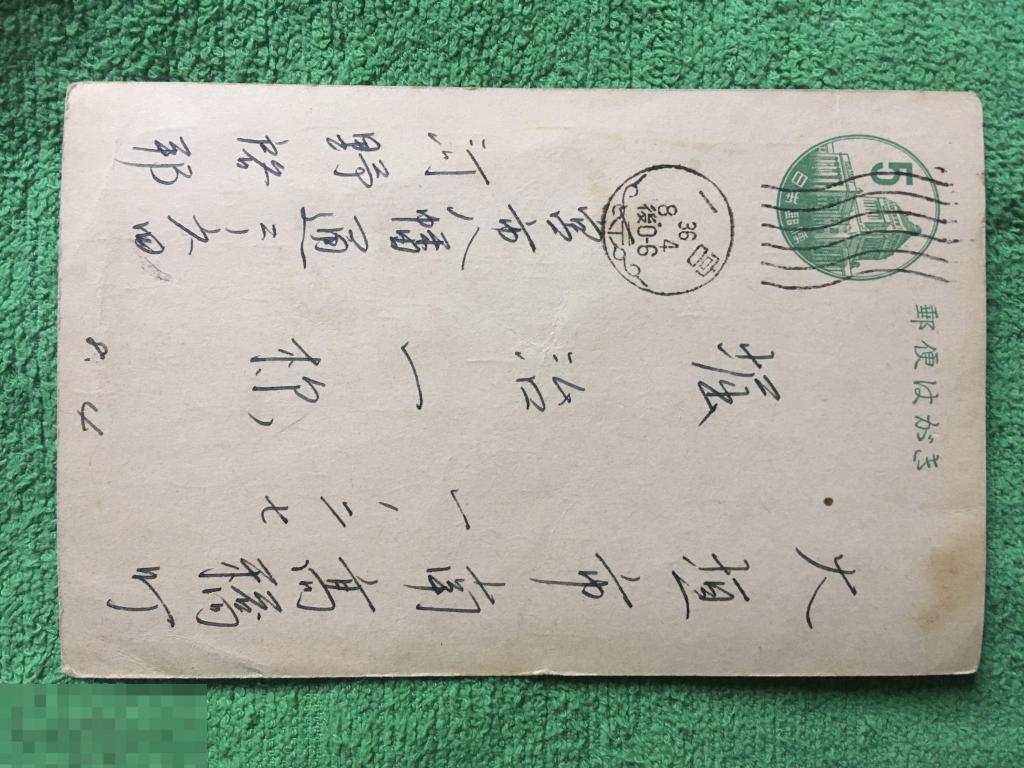 郵便はがき
5
日本郵便
一宮
36
4
8
後0-6
大垣市南高橋町
一ノ二七
治一様
宮市八幡通二ノ六四
河野 郎
8. 4